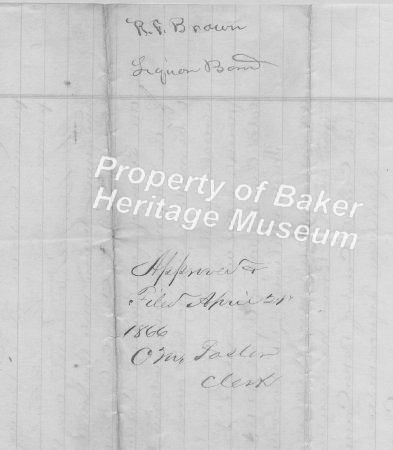 R. F. Brown
Liquor Bond
Property of Baker
Heritage Museum
Approved &
Filed April
1866
Clerk